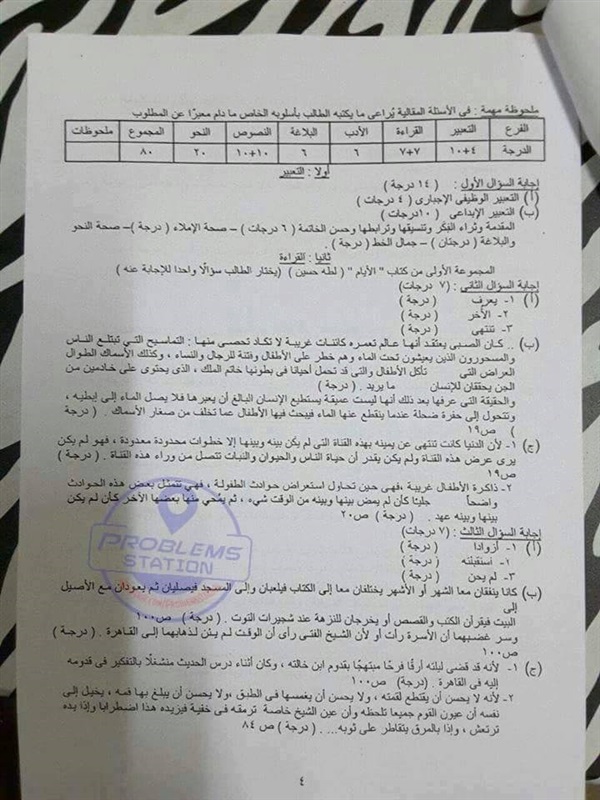 ملحوظة مهمة : فى الأسئلة المقالية يُراعى ما يكتبه الطالب بأسلوبه الخاص ما دام معبرًا عن المطلوب
الفرع التعبير القراءة الأدب البلاغة النصوص النحو المجموع ملحوظات
الدرجة ٤+١٠ ٧+٧ ٦ ٦ ١٠+١٠ ٢٠ ٨٠
أولا : التعبير
إجابة السؤال الأول : ( ١٤ درجة )
(أ) التعبير الوظيفى الإجبارى ( ٤ درجات )
(ب) التعبير الإبداعى ( ١٠درجات )
المقدمة وثراء الفِكَر وتنسيقها وترابطها وحسن الخاتمة ( ٦ درجات ) – صحة الإملاء ( درجة )– صحة النحو
والبلاغة ( درجتان ) – جمال الخط ( درجة ) .
ثانيا : القراءة
المجموعة الأولى من كتاب " الأيام " ( لطه حسين ) (يختار الطالب سؤالا واحدا للإجابة عنه )
إجابة السؤال الثانى : (٧ درجات)
(أ) ١- يعرف ( درجة )
٢- الآخر ( درجة )
٣- تنتهى ( درجة )
(ب) .. كان الصبى يعتقد أنهـا عـالم تعمـره كائنـات غريبـة لا تكـاد تحصـى منهـا : التماسيح التـى تبتلـع النـاس
والمسحورون الذين يعيشون تحت الماء وهم خطر على الأطفال وفتنة للرجال والنساء ، وكذلك الأسماك الطوال
العراض التى تأكل الأطفال والتى قد تحمل أحيانا فى بطونها خاتم الملك ، الذى يحتوى على خادمين من
الجن يحققان للإنسان ما يريد . ( درجة )
والحقيقة التى عرفها بعد ذلك أنها ليست عميقة يستطيع الإنسان البالغ أن يعبرها فلا يصل الماء إلى إبطيه ،
وتتحول إلى حفرة ضحلة عندما ينقطع عنها الماء فيبحث فيها الأطفال عما تخلف من صغار الأسماك . ( درجة
) ص١٩
(ج) ١- لأن الدنيا كانت تنتهى عن يمينه بهذه القناة التى لم يكن بينه وبينها إلا خطوات محدودة معدودة ، فهو لم يكن
يرى عرض هذه القناة ولم يكن يقدر أن حياة الناس والحيوان والنبات تتصل من وراء هذه القناة . ( درجة )
ص١٩
٢- ذاكرة الأطفال غريبة ،فهى حين تحاول استعراض حوادث الطفولة ، فهى تتمثل بعض هذه الحوادث
واضحاً جليًا كأن لم يمض بينها وبينه من الوقت شىء ، ثم يُمحى منها بعضها الآخر كأن لم يكن
بينها وبينه عهد . ( درجة ) ص٢٠
إجابة السؤال الثالث : ( ٧ درجات)
(أ) ١- أزوادا ( درجة )
٢- استقبلته ( درجة )
٣- لم يحن ( درجة )
(ب) كانا ينفقان معا الشهر أو الأشهر يختلفان معا إلى الكتاب فيلعبان وإلى المسجد فيصليان ثم يعودان مع الأصيل
إلى
البيت فيقرآن الكتب والقصص أو يخرجان للنزهة عند شجيرات التوت . ( درجة ) ص١٠٠
وسر غضبهما أن الأسرة رأت أو لأن الشيخ الفتى رأى أن الوقت لم يئن لذهابهما إلى القاهرة . ( درجـة )
ص١٠٠
(ج) ١- لأنه قد قضى ليلته أرقًا فرحًا مبتهجًا بقدوم ابن خالته ، وكان أثناء درس الحديث منشغلًا بالتفكير فى قدومه
إليه فى القاهرة . (درجة) ص١٠٠
٢- لأنه لا يحسن أن يقتطع لقمته ، ولا يحسن أن يغمسها فى الطبق ،ولا يحسن أن يبلغ بها فمه ، يخيل إلى
نفسه أن عيون القوم جميعا تلحظه وأن عين الشيخ خاصة ترمقه فى خفية فيزيده هذا اضطرابا وإذا يده
ترتعش ، وإذا بالمرق يتقاطر على ثوبه... . ( درجة ) ص ٨٤
PROBLEMS
STATION
٤